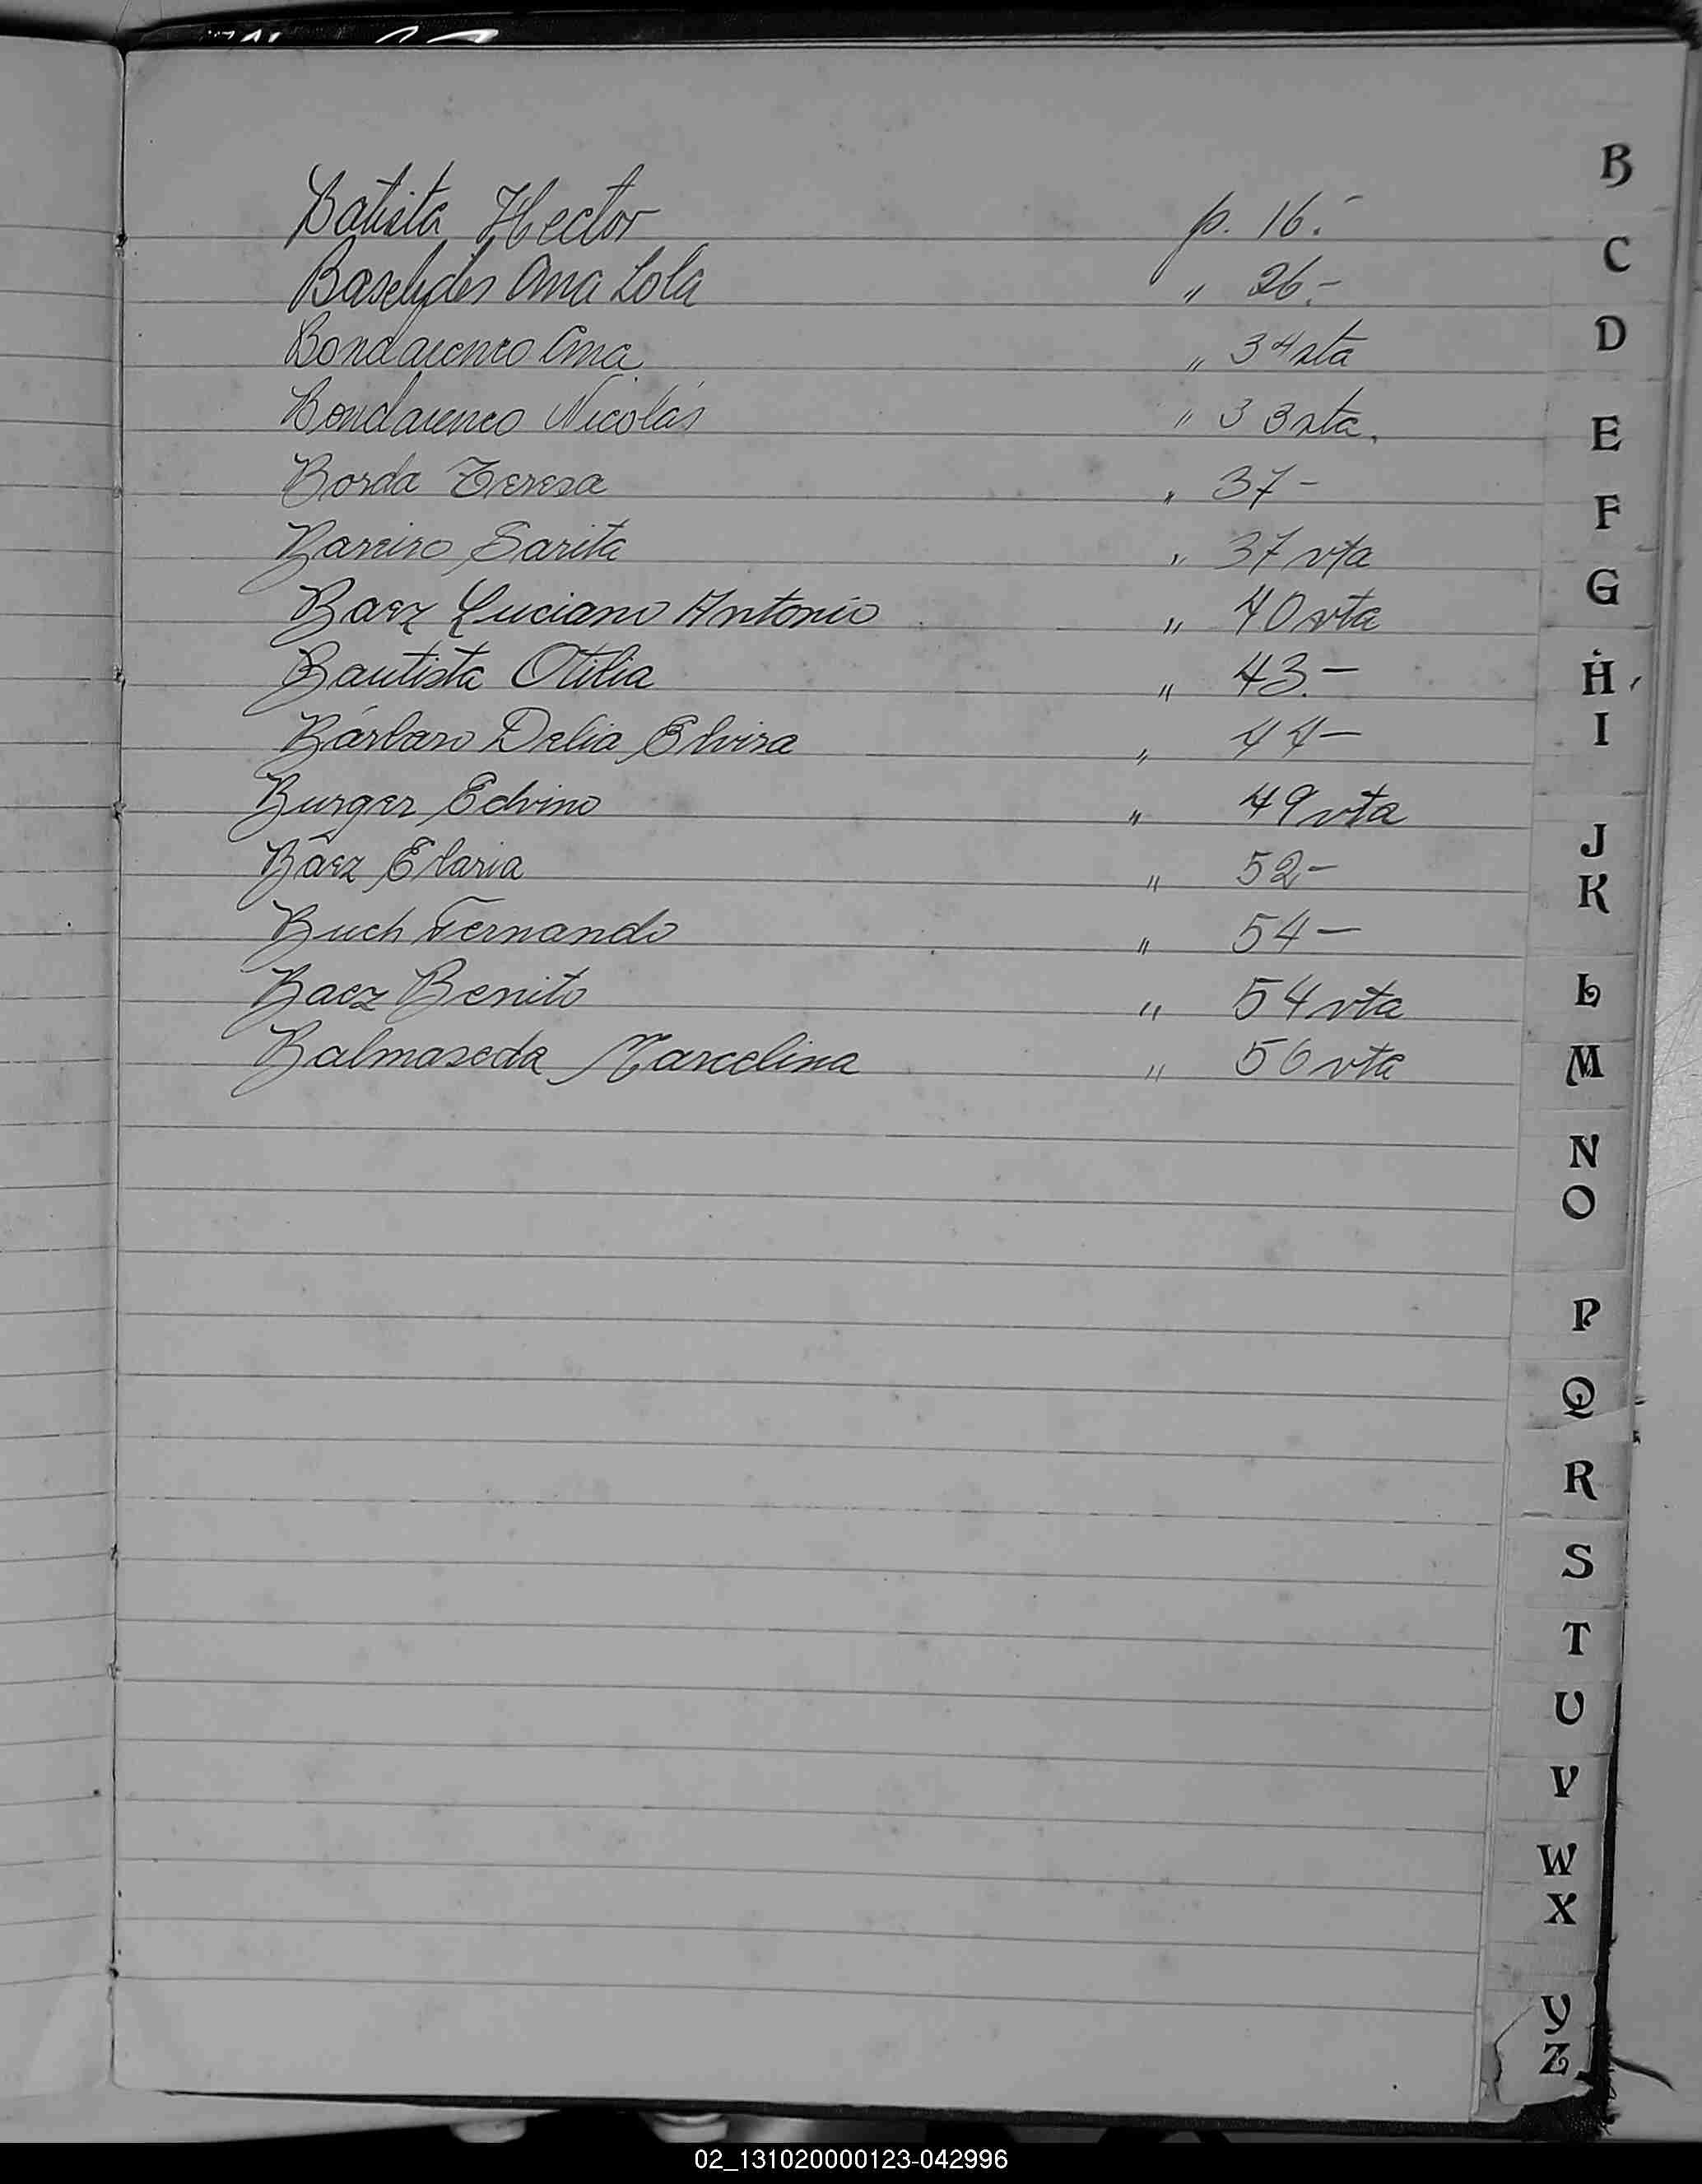 Batista Hector p. 16.-
Baselydes Ana Lola " 26.-
Bondarenco Ana " 34 vta
Bondarenco Nicolás " 33 vta.
Borda Teresa " 37-
Barreiro Sarita " 37 vta
Baez Luciano Antonio " 40 vta
Bautista Otilia " 43.-
Bárbaro Delia Elvira " 44-
Burger Edvino " 49 vta
Báez Elaria " 52-
Buch Fernando " 54-
Baez Benito " 54 vta
Balmaseda Marcelina " 56 vta
B
C
D
E
F
G
H
I
J
K
L
M
N
O
P
Q
R
S
T
U
V
W
X
Y
Z
02_131020000123-042996